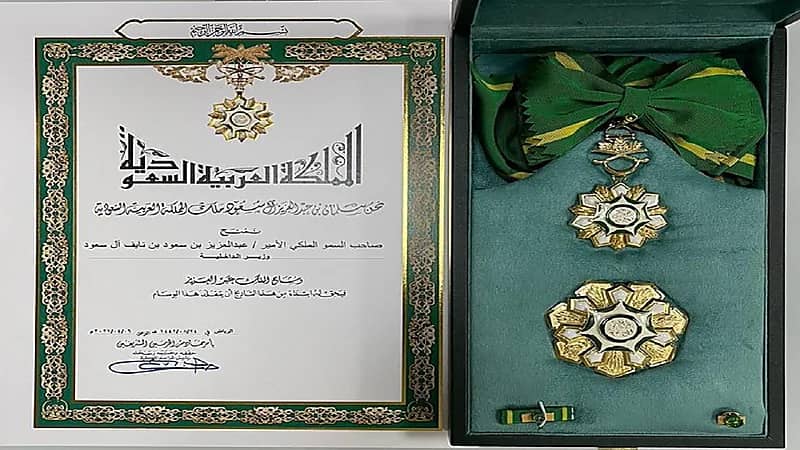 بسم الله الرحمن الرحيم
المملكة العربية السعودية
نحن سلمان بن عبدالعزيز آل سعود ملك المملكة العربية السعودية
نمنح
صاحب السمو الملكي الأمير / عبدالعزيز بن سعود بن نايف آل سعود
وزير الداخلية
وشاح الملك عبدالعزيز
فيحق له ابتداءً من هذا التاريخ أن يتقلد هذا الوسام
الرياض في
بأمر خادم الحرمين الشريفين